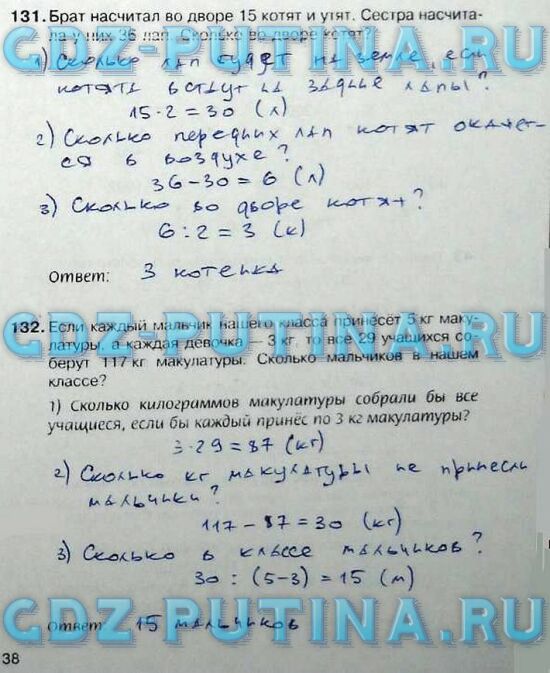 131. Брат насчитал во дворе 15 котят и утят. Сестра насчита-
ла у них 36 лап. Сколько во дворе котят?
1) Сколько лап будет на земле, если
котята встанут на задние лапы?
15·2=30 (л)
2) Сколько передних лап котят окажет-
ся в воздухе?
36-30=6 (л)
3) Сколько во дворе котят?
6:2=3 (к)
Ответ: 3 котенка
132. Если каждый мальчик нашего класса принесёт 5 кг маку-
латуры, а каждая девочка — 3 кг, то все 29 учащихся со-
берут 117 кг макулатуры. Сколько мальчиков в нашем
классе?
1) Сколько килограммов макулатуры собрали бы все
учащиеся, если бы каждый принёс по 3 кг макулатуры?
3·29=87 (кг)
2) Сколько кг макулатуры не принесли
мальчики?
117-87=30 (кг)
3) Сколько в классе мальчиков?
30:(5-3)=15 (м)
Ответ: 15 мальчиков
38
GDZ-PUTINA.RU
GDZ-PUTINA.RU
GDZ-PUTINA.RU